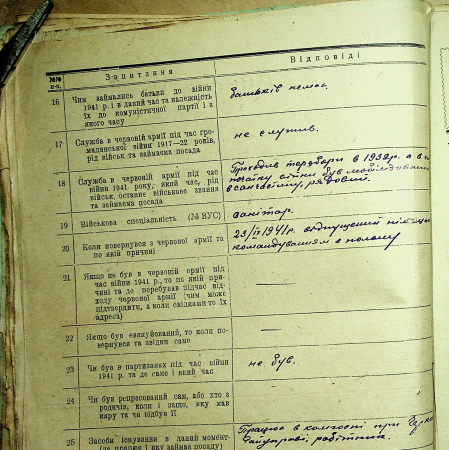 №№ п-п.
Запитання
Відповіді
16
Чим займались батьки до війни
1941 р. і в даний час та належність
їх до комуністичної партії і з
якого часу
батьків немає.
17
Служба в червоній армії під час гро-
мадянської війни 1917—22 років,
рід військ та займаєма посада
не служив.
18
Служба в червоній армії під час
війни 1941 року, який час, рід
військ, останнє військове звання
та займаєма посада
Проходив терзбори в 1932р. а в
війни був мобілізований
рядовий.
19
Військова спеціальність (№ ВУС)
санітар.
20
Коли повернувся з червоної армії та
по якій причині
1941р. відпущений
командуванням з полону
21
Якщо не був в червоній армії під
час війни 1941 р., то по якій при-
чині та де перебував підчас від-
ходу червоної армії (чим може
підтвердити, а коли свідками то їх
адреса)
22
Якщо був евакуйований, то коли по-
вернувся та звідки саме
23
Чи був в партизанах під час війни
1941 р. та де саме і який час
не був.
24
Чи був репресований сам, або хто з
родичів, коли і защо, яку мав
кару та чи відбув її
25
Засоби існування в даний момент-
(де працює і яку займає посаду)
Працює в при
робітником.